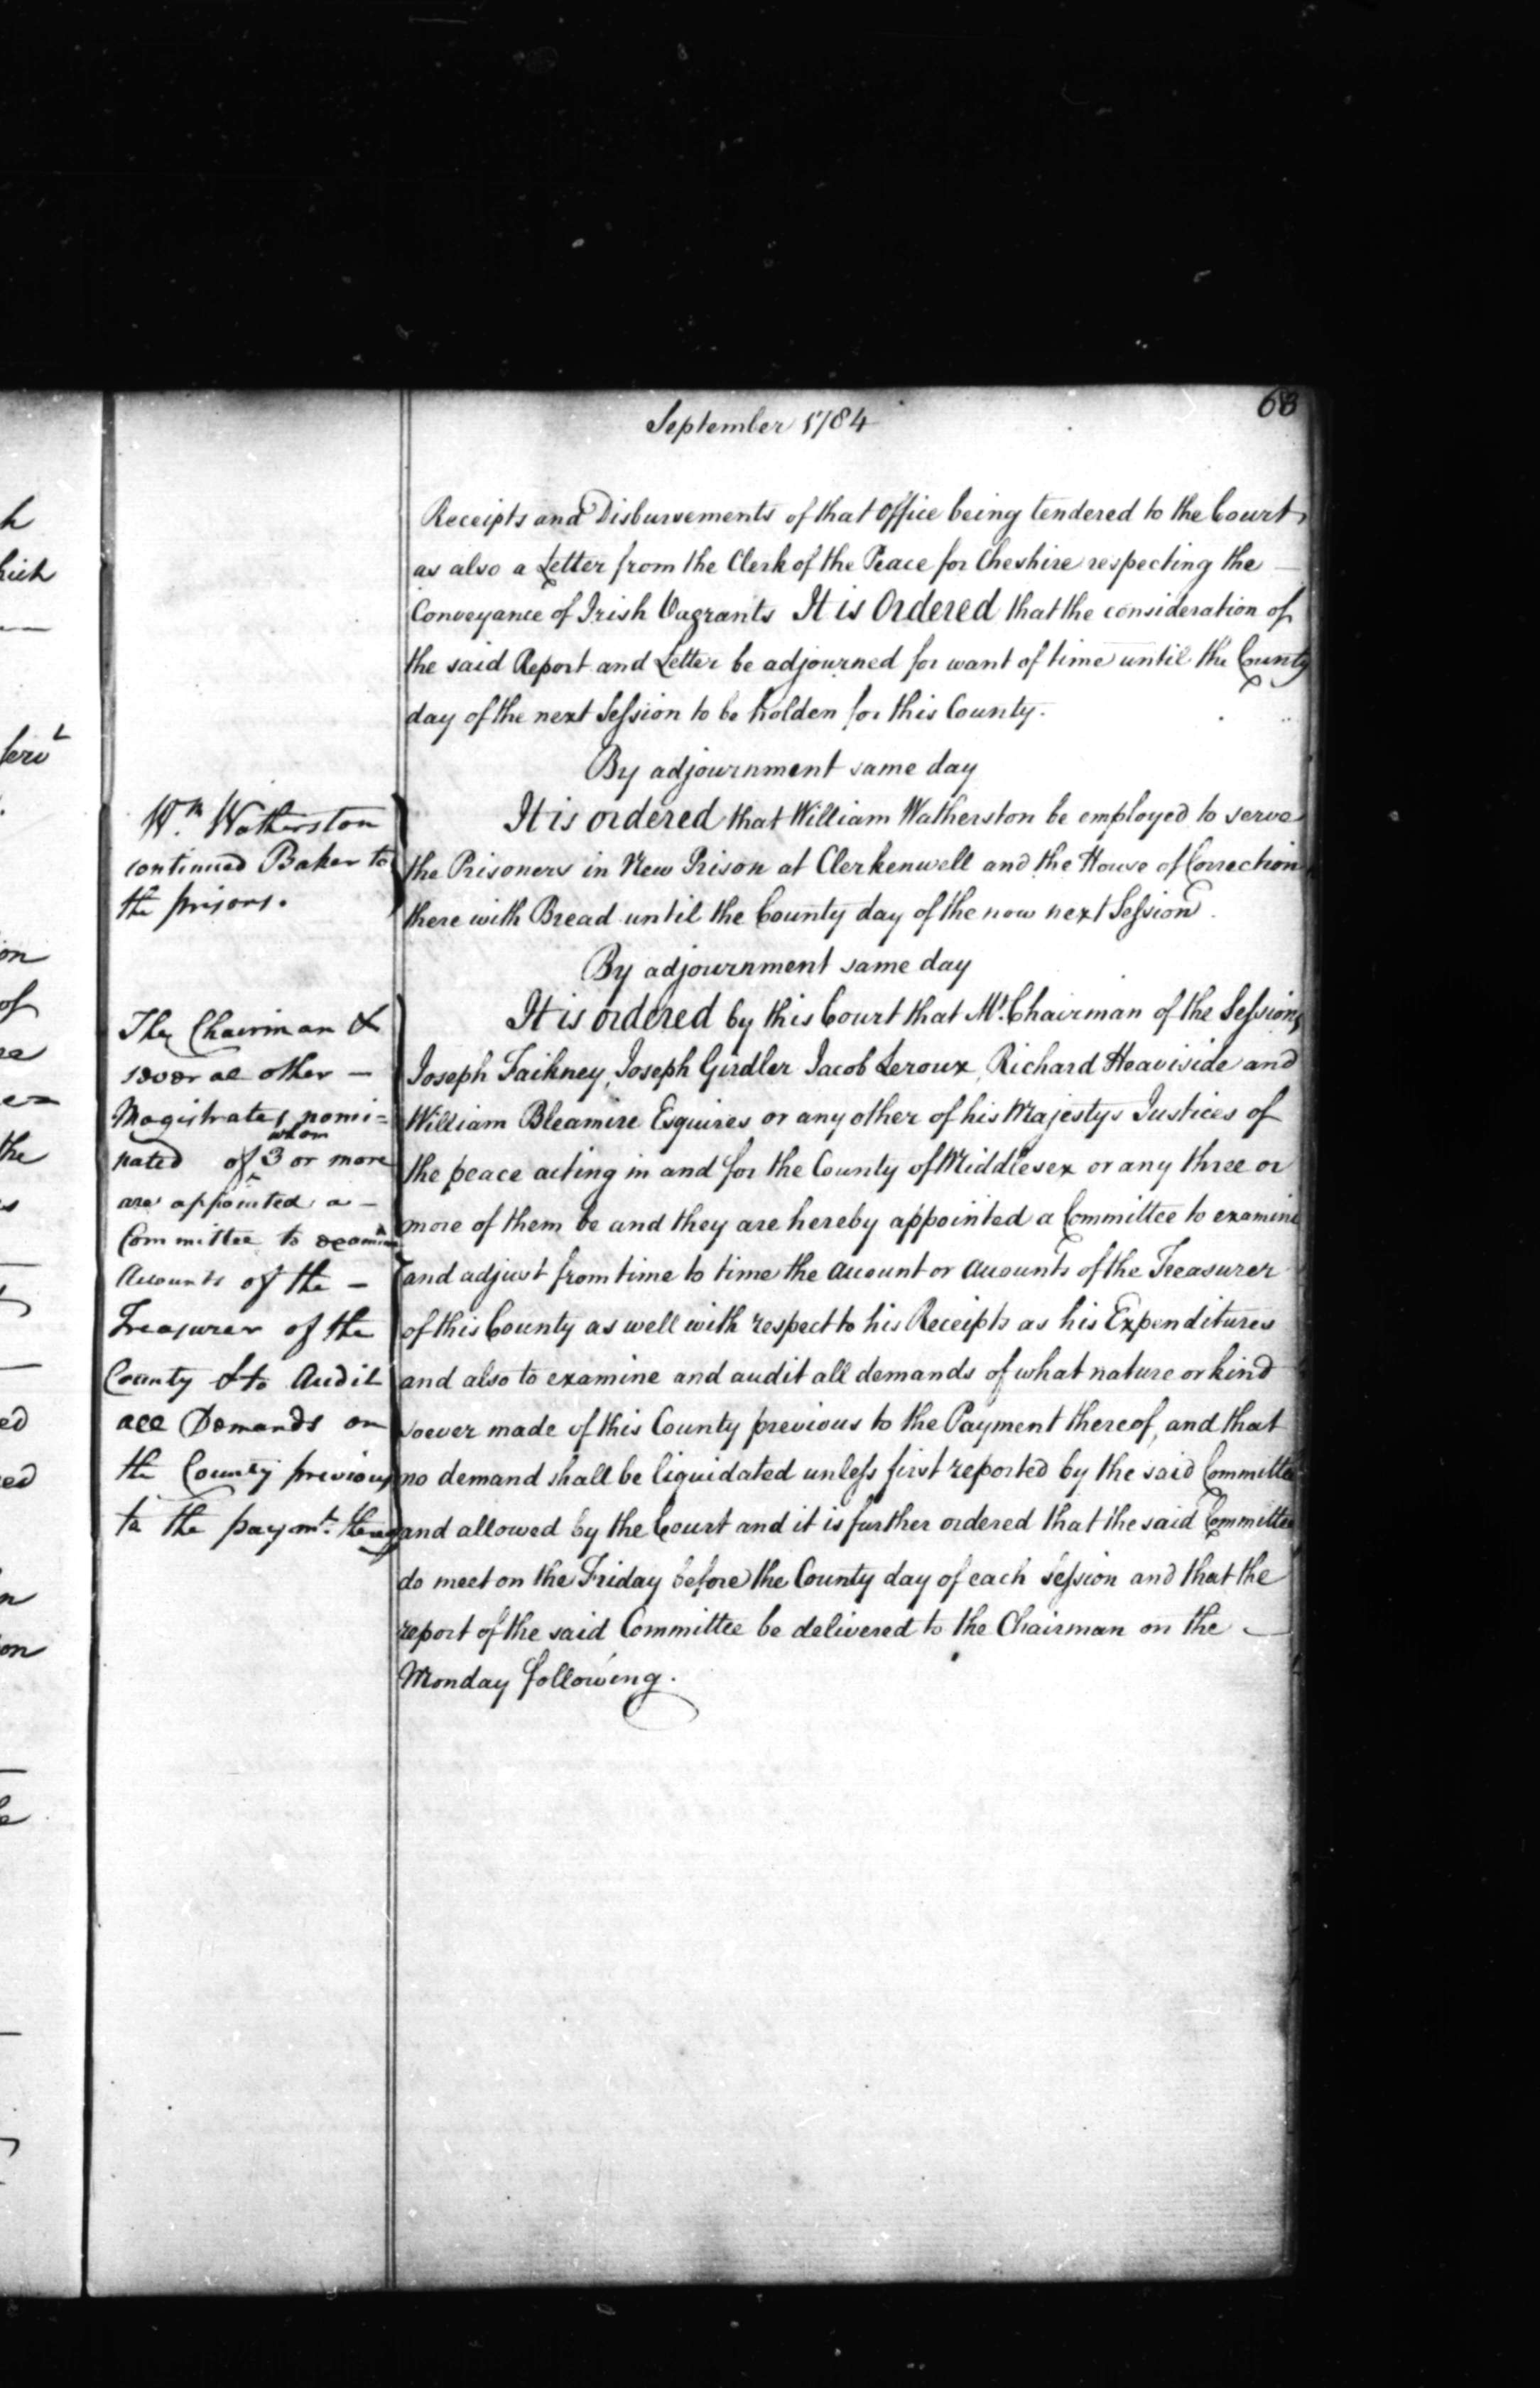 September 1784
68
Receipts and Disbursements of that office being tendered to the Court
as also a Letter from the Clerk of the Peace for Cheshire respecting the
Conveyance of Irish Vagrants It is Ordered that the consideration of
the said Report and Letter be adjourned for want of time until the County
day of the next Session to be holden for this County.
By adjournment same day
Wm. Watherston
continued Baker to
the prisons.
It is ordered that William Watherston be employed to serve
the Prisoners in New Prison at Clerkenwell and the House of Correction
there with Bread until the County day of the now next Session.
By adjournment same day
The Chairman &
several other
Magistrates nomi=
nated of whom 3 or more
are appointed a
Committee to examine
Accounts of the
Treasurer of the
County & to Audit
all Demands on
the County previous
to the paymt. thereof
It is ordered by this Court that Mr. Chairman of the Sessions
Joseph Faikney, Joseph Girdler Jacob Leroux, Richard Heaviside and
William Bleamire Esquires or any other of his Majestys Justices of
the peace acting in and for the County of Middlesex or any three or
more of them be and they are hereby appointed a Committee to examine
and adjust from time to time the account or accounts of the Treasurer
of this County as well with respect to his Receipts as his Expenditures
and also to examine and audit all demands of what nature or kind
soever made of this County previous to the Payment thereof, and that
no demand shall be liquidated unless first reported by the said Committee
and allowed by the Court and it is further ordered that the said Committee
do meet on the Friday before the County day of each session and that the
report of the said Committee be delivered to the Chairman on the
Monday following.